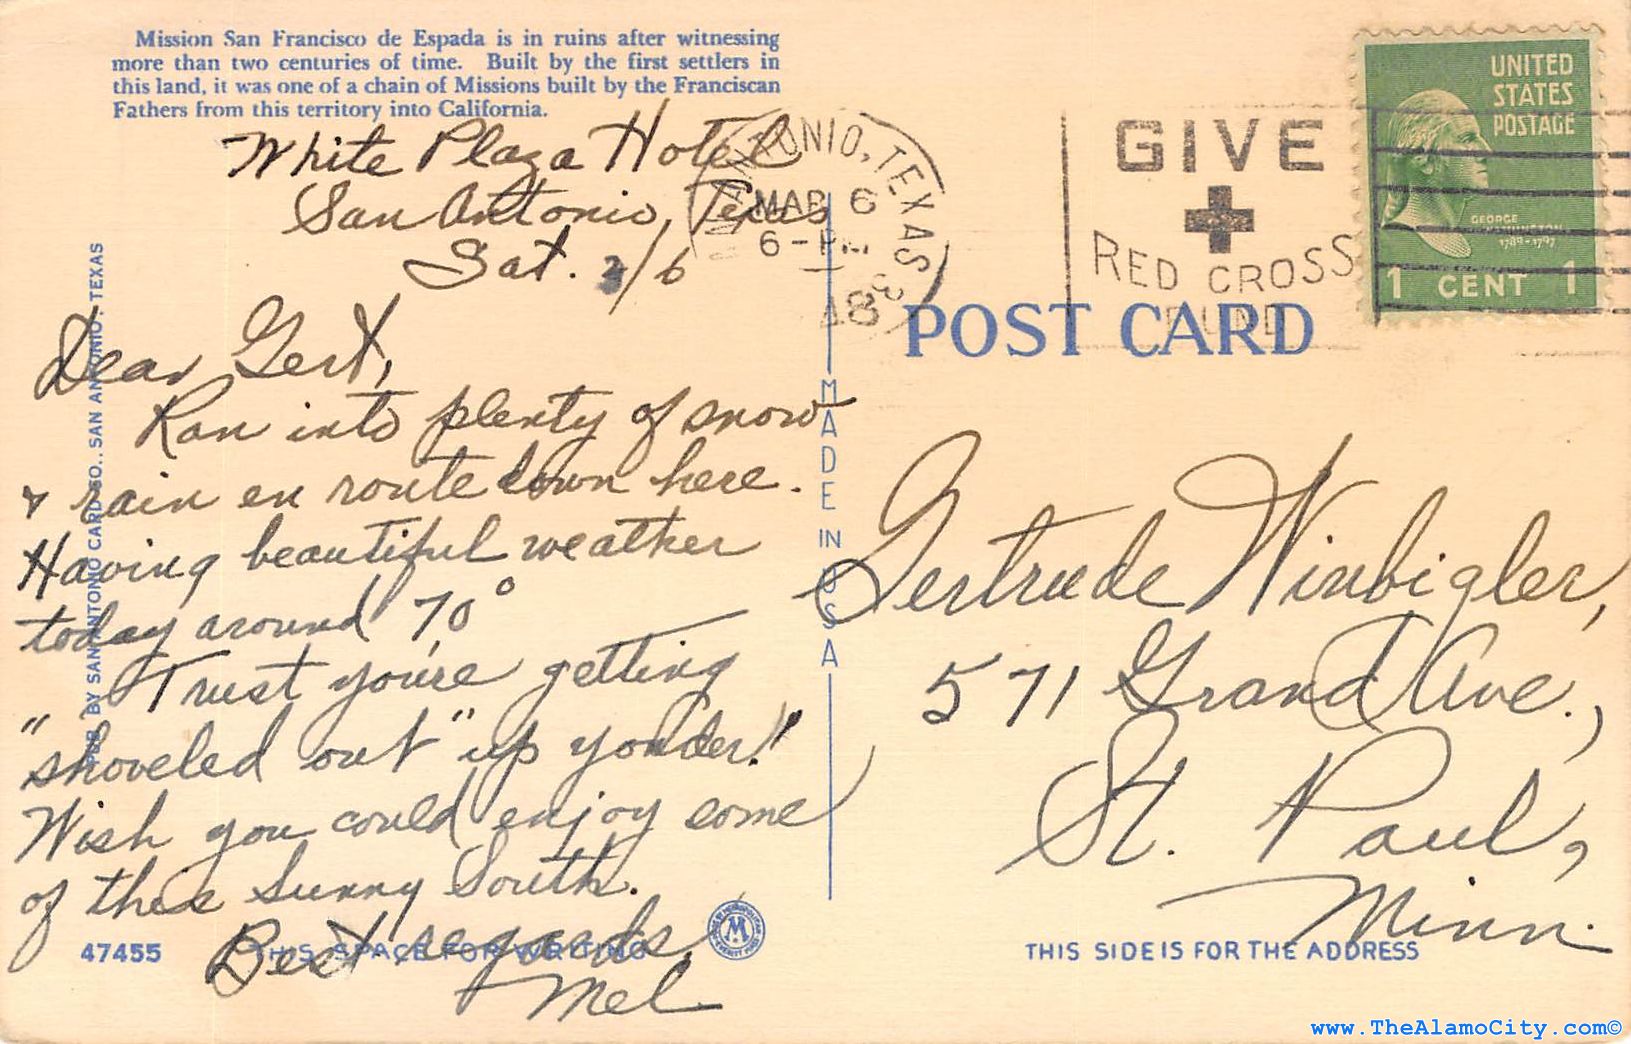 Mission San Francisco de Espada is in ruins after witnessing
more than two centuries of time. Built by the first settlers in
this land, it was one of a chain of Missions built by the Franciscan
Fathers from this territory into California.
White Plaza Hotel
San Antonio, Texas
Sat. 3/6
Dear Gert,
Ran into plenty of snow
& rain en route down here.
Having beautiful weather
today around 70°
Trust you're getting
"shoveled out" up yonder!
Wish you could enjoy some
of this Sunny South.
Best regards,
Mel
47455
THIS SPACE FOR WRITING
PUB. BY SAN ANTONIO CARD CO., SAN ANTONIO, TEXAS
MADE IN USA
ANTONIO, TEXAS
MAR 6
6-PM
GIVE
RED CROSS
FUND
UNITED
STATES
POSTAGE
GEORGE
WASHINGTON
1789-1797
1 CENT 1
POST CARD
Gertrude Winbigler,
571 Grand Ave.,
St. Paul,
Minn.
THIS SIDE IS FOR THE ADDRESS
www.TheAlamoCity.com©